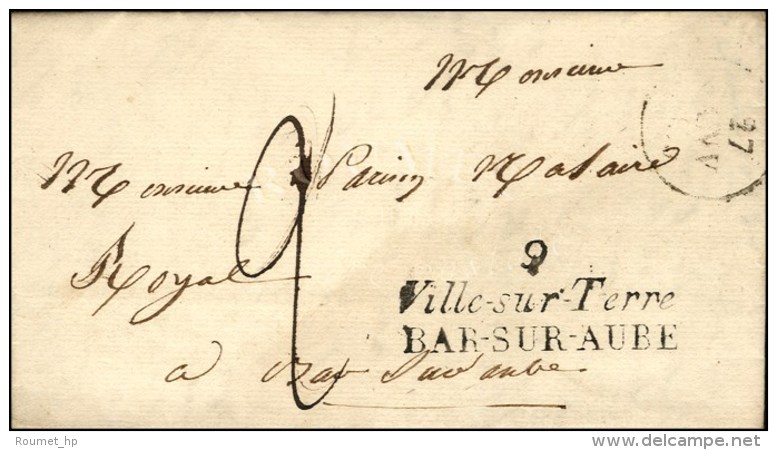 Monsieur
27
Monsieur Parisy Notaire
Royal
9
Ville-sur-Terre
BAR-SUR-AUBE
a Bar Sur aube
Roumet_hp
delcampe.net